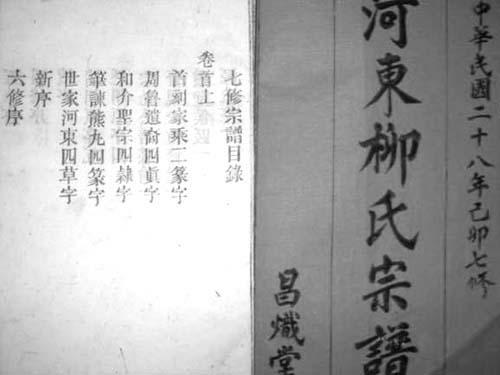 中華民國二十八年己卯七修
河東柳氏宗譜
昌熾堂
七修宗譜目錄
卷首上
首刻家乘二篆字
周魯遺裔四真字
和介聖宗四隸字
筆諫熊丸四篆字
世家河東四草字
新序
六修序